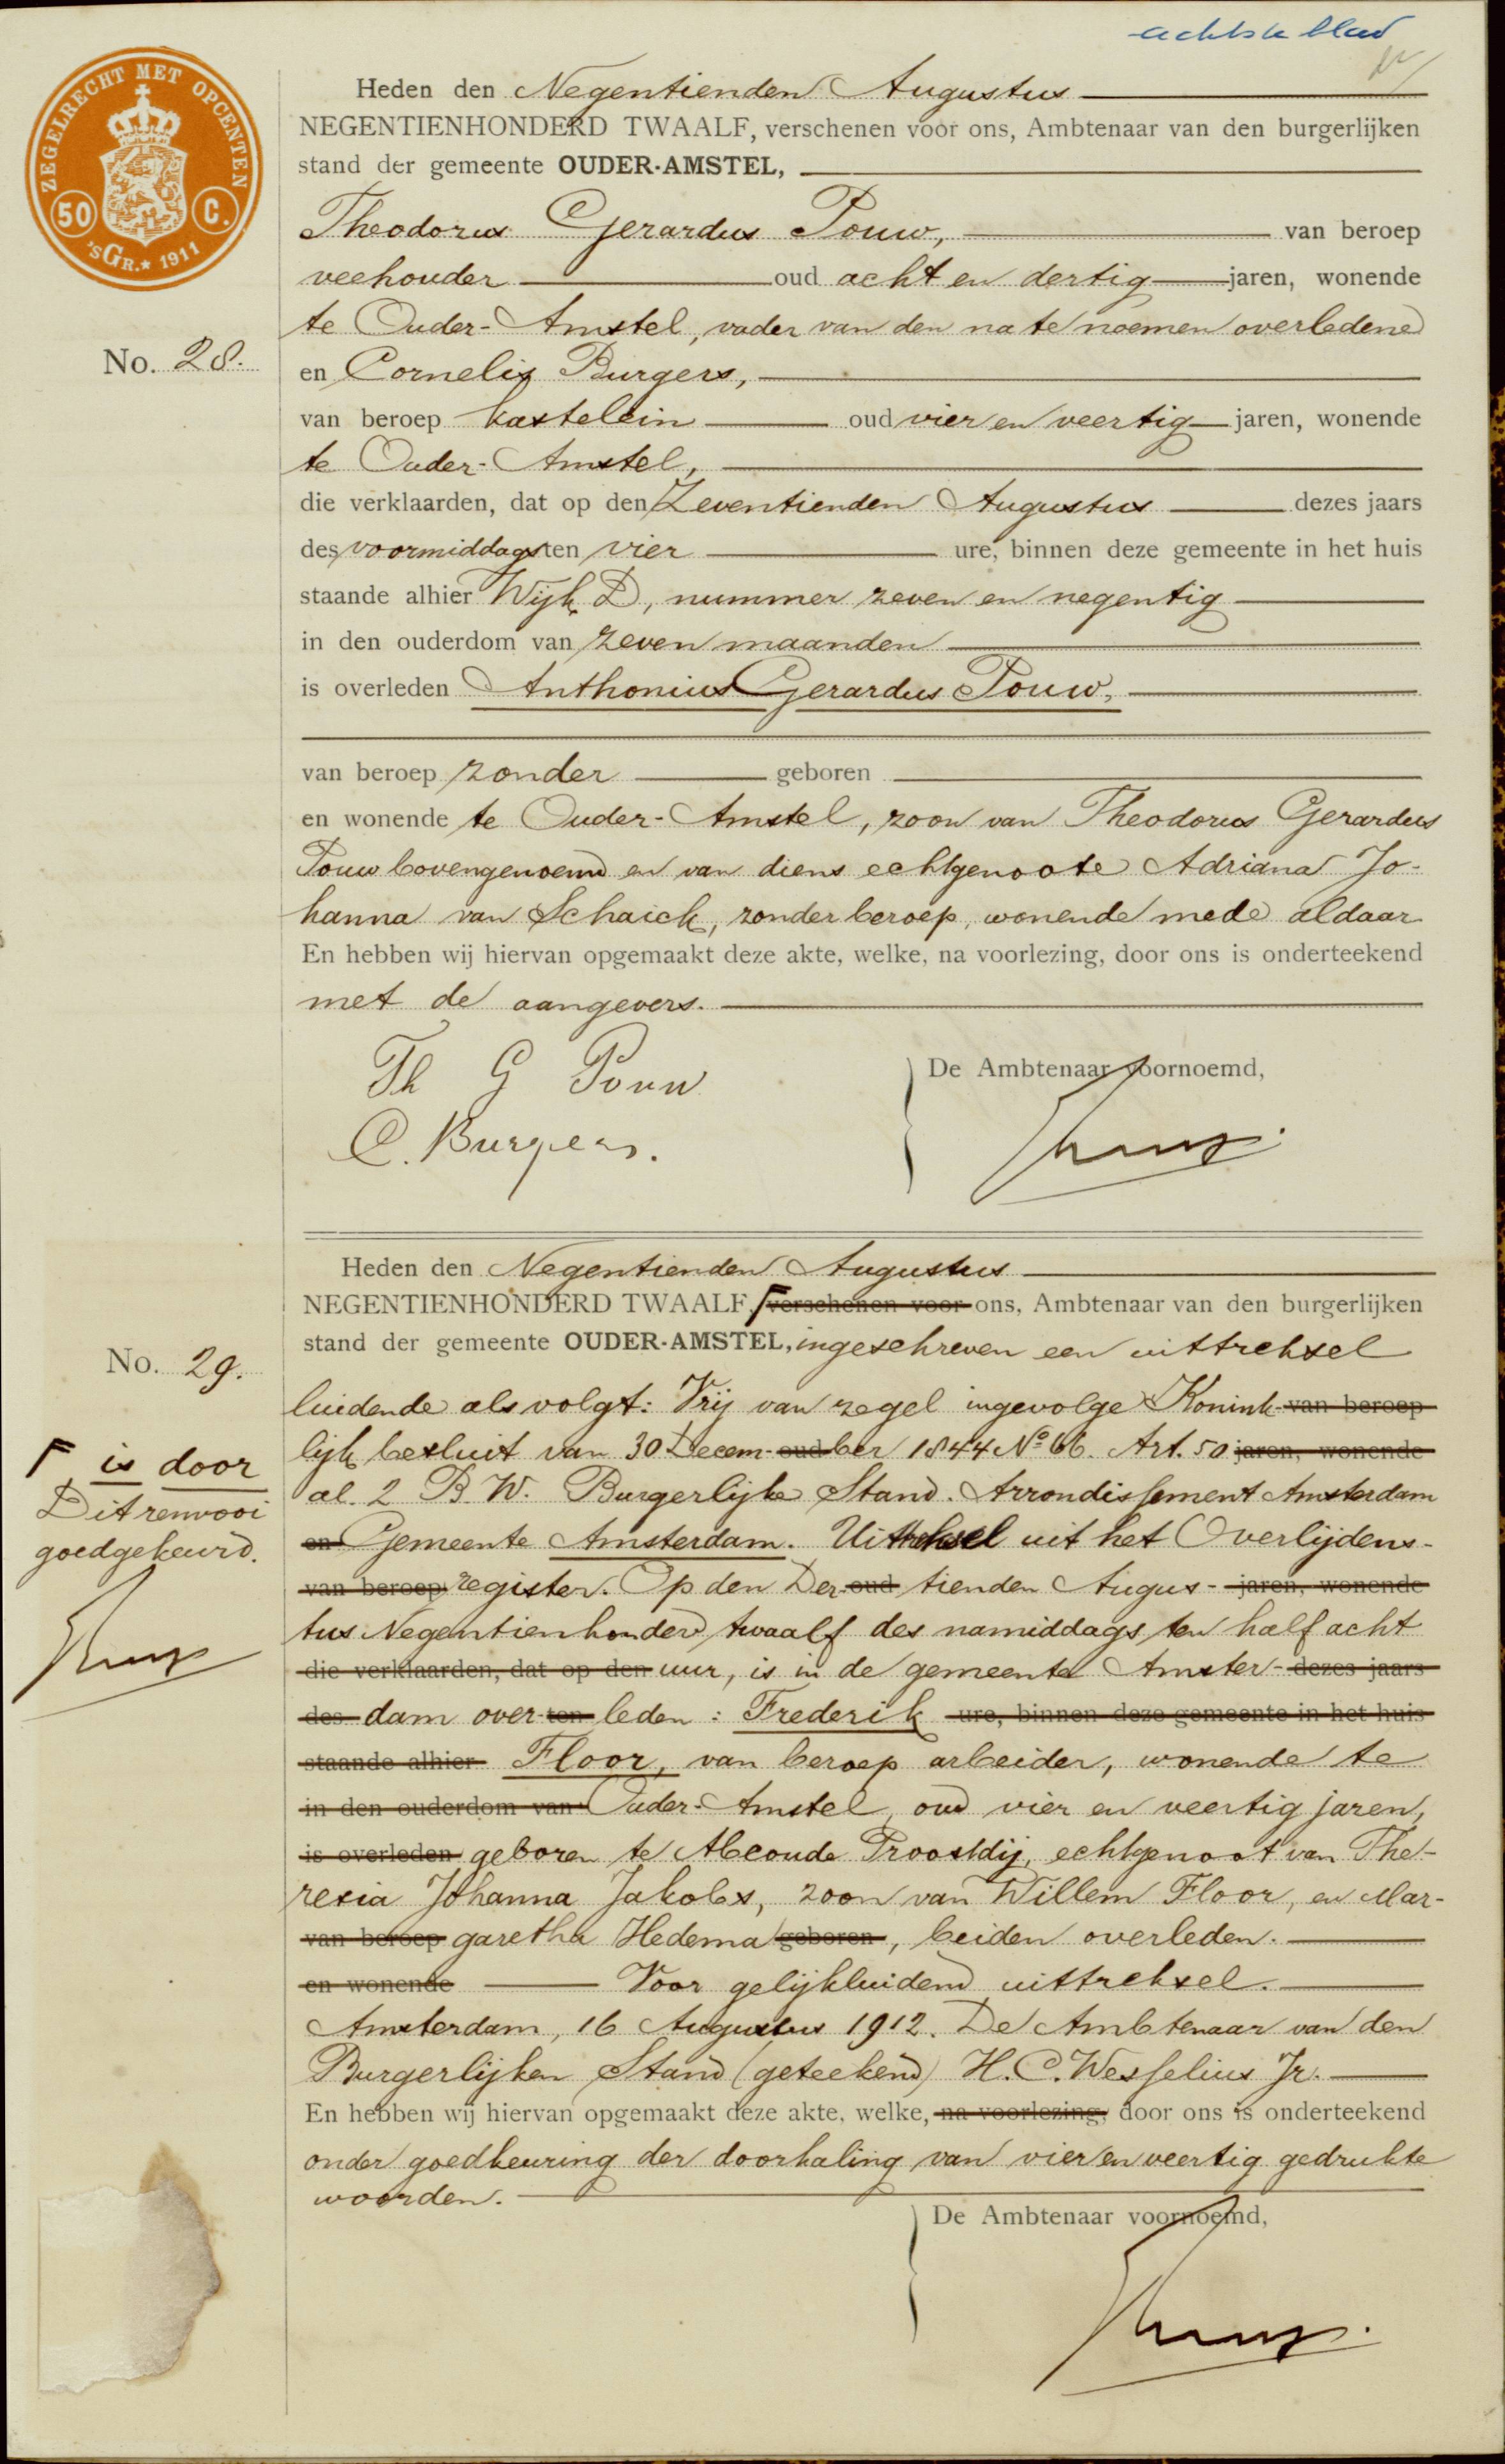 achtste blad
ZEGELRECHT MET OPCENTEN
50 C.
'sGR.★ 1911
Heden den Negentienden Augustus
NEGENTIENHONDERD TWAALF, verschenen voor ons, Ambtenaar van den burgerlijken
stand der gemeente OUDER-AMSTEL,
Theodorus Gerardus Pouw, van beroep
veehouder oud acht en dertig jaren, wonende
te Ouder-Amstel, vader van den na te noemen overledene
No. 28.
en Cornelis Burgers,
van beroep kastelein oud vier en veertig jaren, wonende
te Ouder-Amstel,
die verklaarden, dat op den Zeventienden Augustus dezes jaars
des voormiddags ten vier ure, binnen deze gemeente in het huis
staande alhier Wijk D, nummer zeven en negentig
in den ouderdom van zeven maanden
is overleden Anthonius Gerardus Pouw,
van beroep zonder geboren
en wonende te Ouder-Amstel, zoon van Theodorus Gerardus
Pouw bovengenoemd en van diens echtgenoote Adriana Jo-
hanna van Schaick, zonder beroep, wonende mede aldaar
En hebben wij hiervan opgemaakt deze akte, welke, na voorlezing, door ons is onderteekend
met de aangevers.
Th G Pouw
De Ambtenaar voornoemd,
C. Burgers.
Heden den Negentienden Augustus
NEGENTIENHONDERD TWAALF, verschenen voor ons, Ambtenaar van den burgerlijken
stand der gemeente OUDER-AMSTEL, ingeschreven een uittreksel
No. 29.
luidende als volgt: Vrij van zegel ingevolge Konink- van beroep
lijk besluit van 30 Decem- oud ber 1844 No 66. Art. 50 jaren, wonende
al. 2 B. W. Burgerlijke Stand. Arrondissement Amsterdam
en Gemeente Amsterdam. Uittreksel uit het Overlijdens-
van beroep register. Op den Der- oud tienden Augus- jaren, wonende
tus Negentienhonderd twaalf des namiddags ten half acht
die verklaarden, dat op den uur, is in de gemeente Amster- dezes jaars
des dam over- ten leden : Frederik ure, binnen deze gemeente in het huis
staande alhier Floor, van beroep arbeider, wonende te
in den ouderdom van Ouder-Amstel, oud vier en veertig jaren,
is overleden geboren te Abcoude Proostdij, echtgenoot van The-
resia Johanna Jakobs, zoon van Willem Floor, en Mar-
van beroep garetha Hedema geboren, beiden overleden.
en wonende Voor gelijkluidend uittreksel.
Amsterdam, 16 Augustus 1912. De Ambtenaar van den
Burgerlijken Stand (geteekend) H. C. Wesselius Jr.
En hebben wij hiervan opgemaakt deze akte, welke, na voorlezing, door ons is onderteekend
onder goedkeuring der doorhaling van vier en veertig gedrukte
woorden.
De Ambtenaar voornoemd,
is door
Dit renvooi
goedgekeurd.